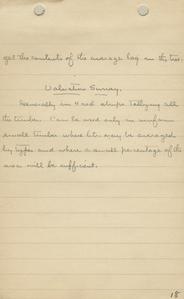 get the contents of the average log in the tree.
Valuation Survey.
Generally in 4 rod strips tallying all
the timber. Can be used only in uniform
small timber where ht. may be averaged
by types and where a small percentage of the
area will be sufficient.
18